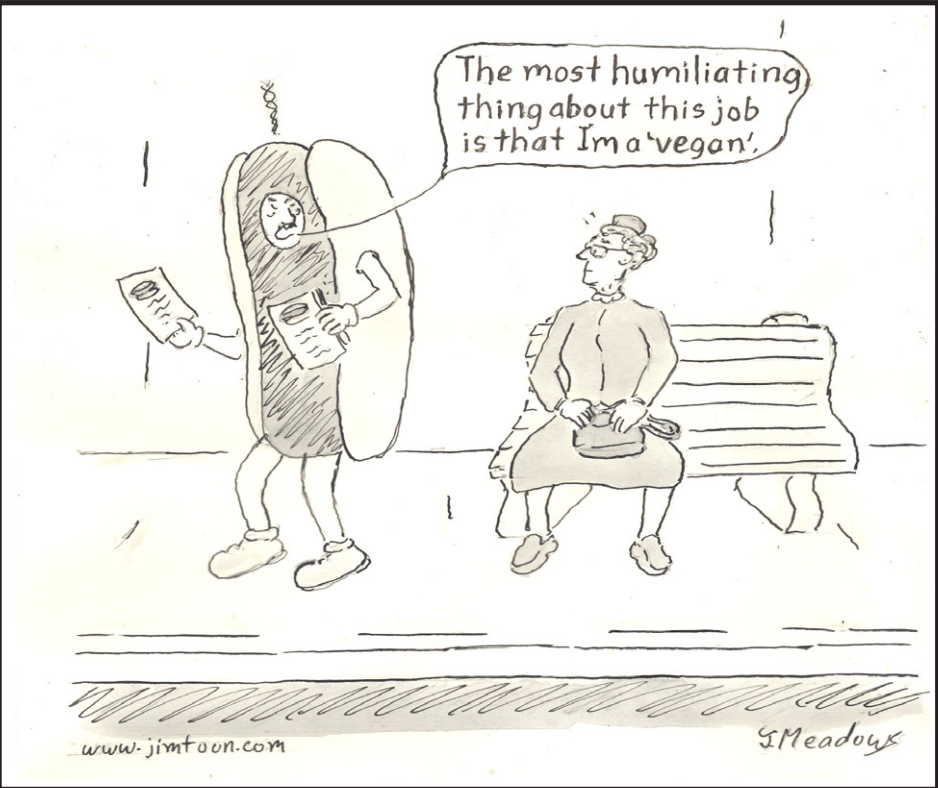 The most humiliating
thing about this job
is that I'm a 'vegan'.
www.jimtoon.com
J Meadows